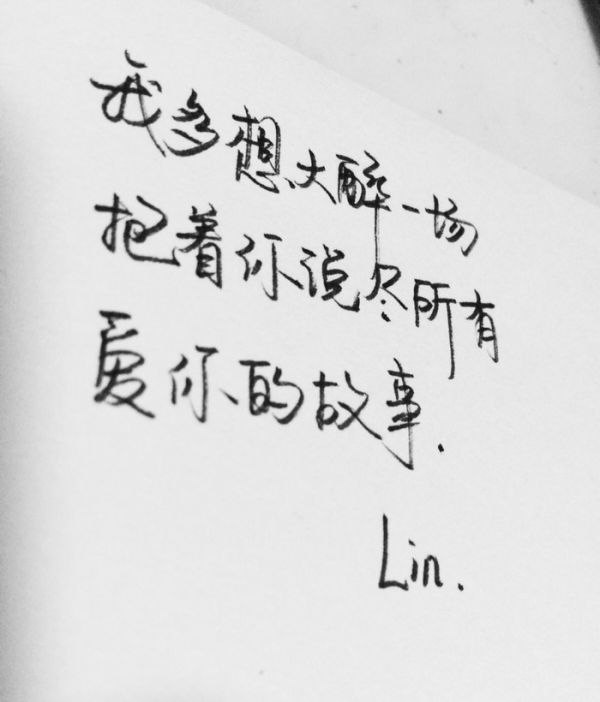 我多想大醉一场
抱着你说尽所有
爱你的故事.
Lin.